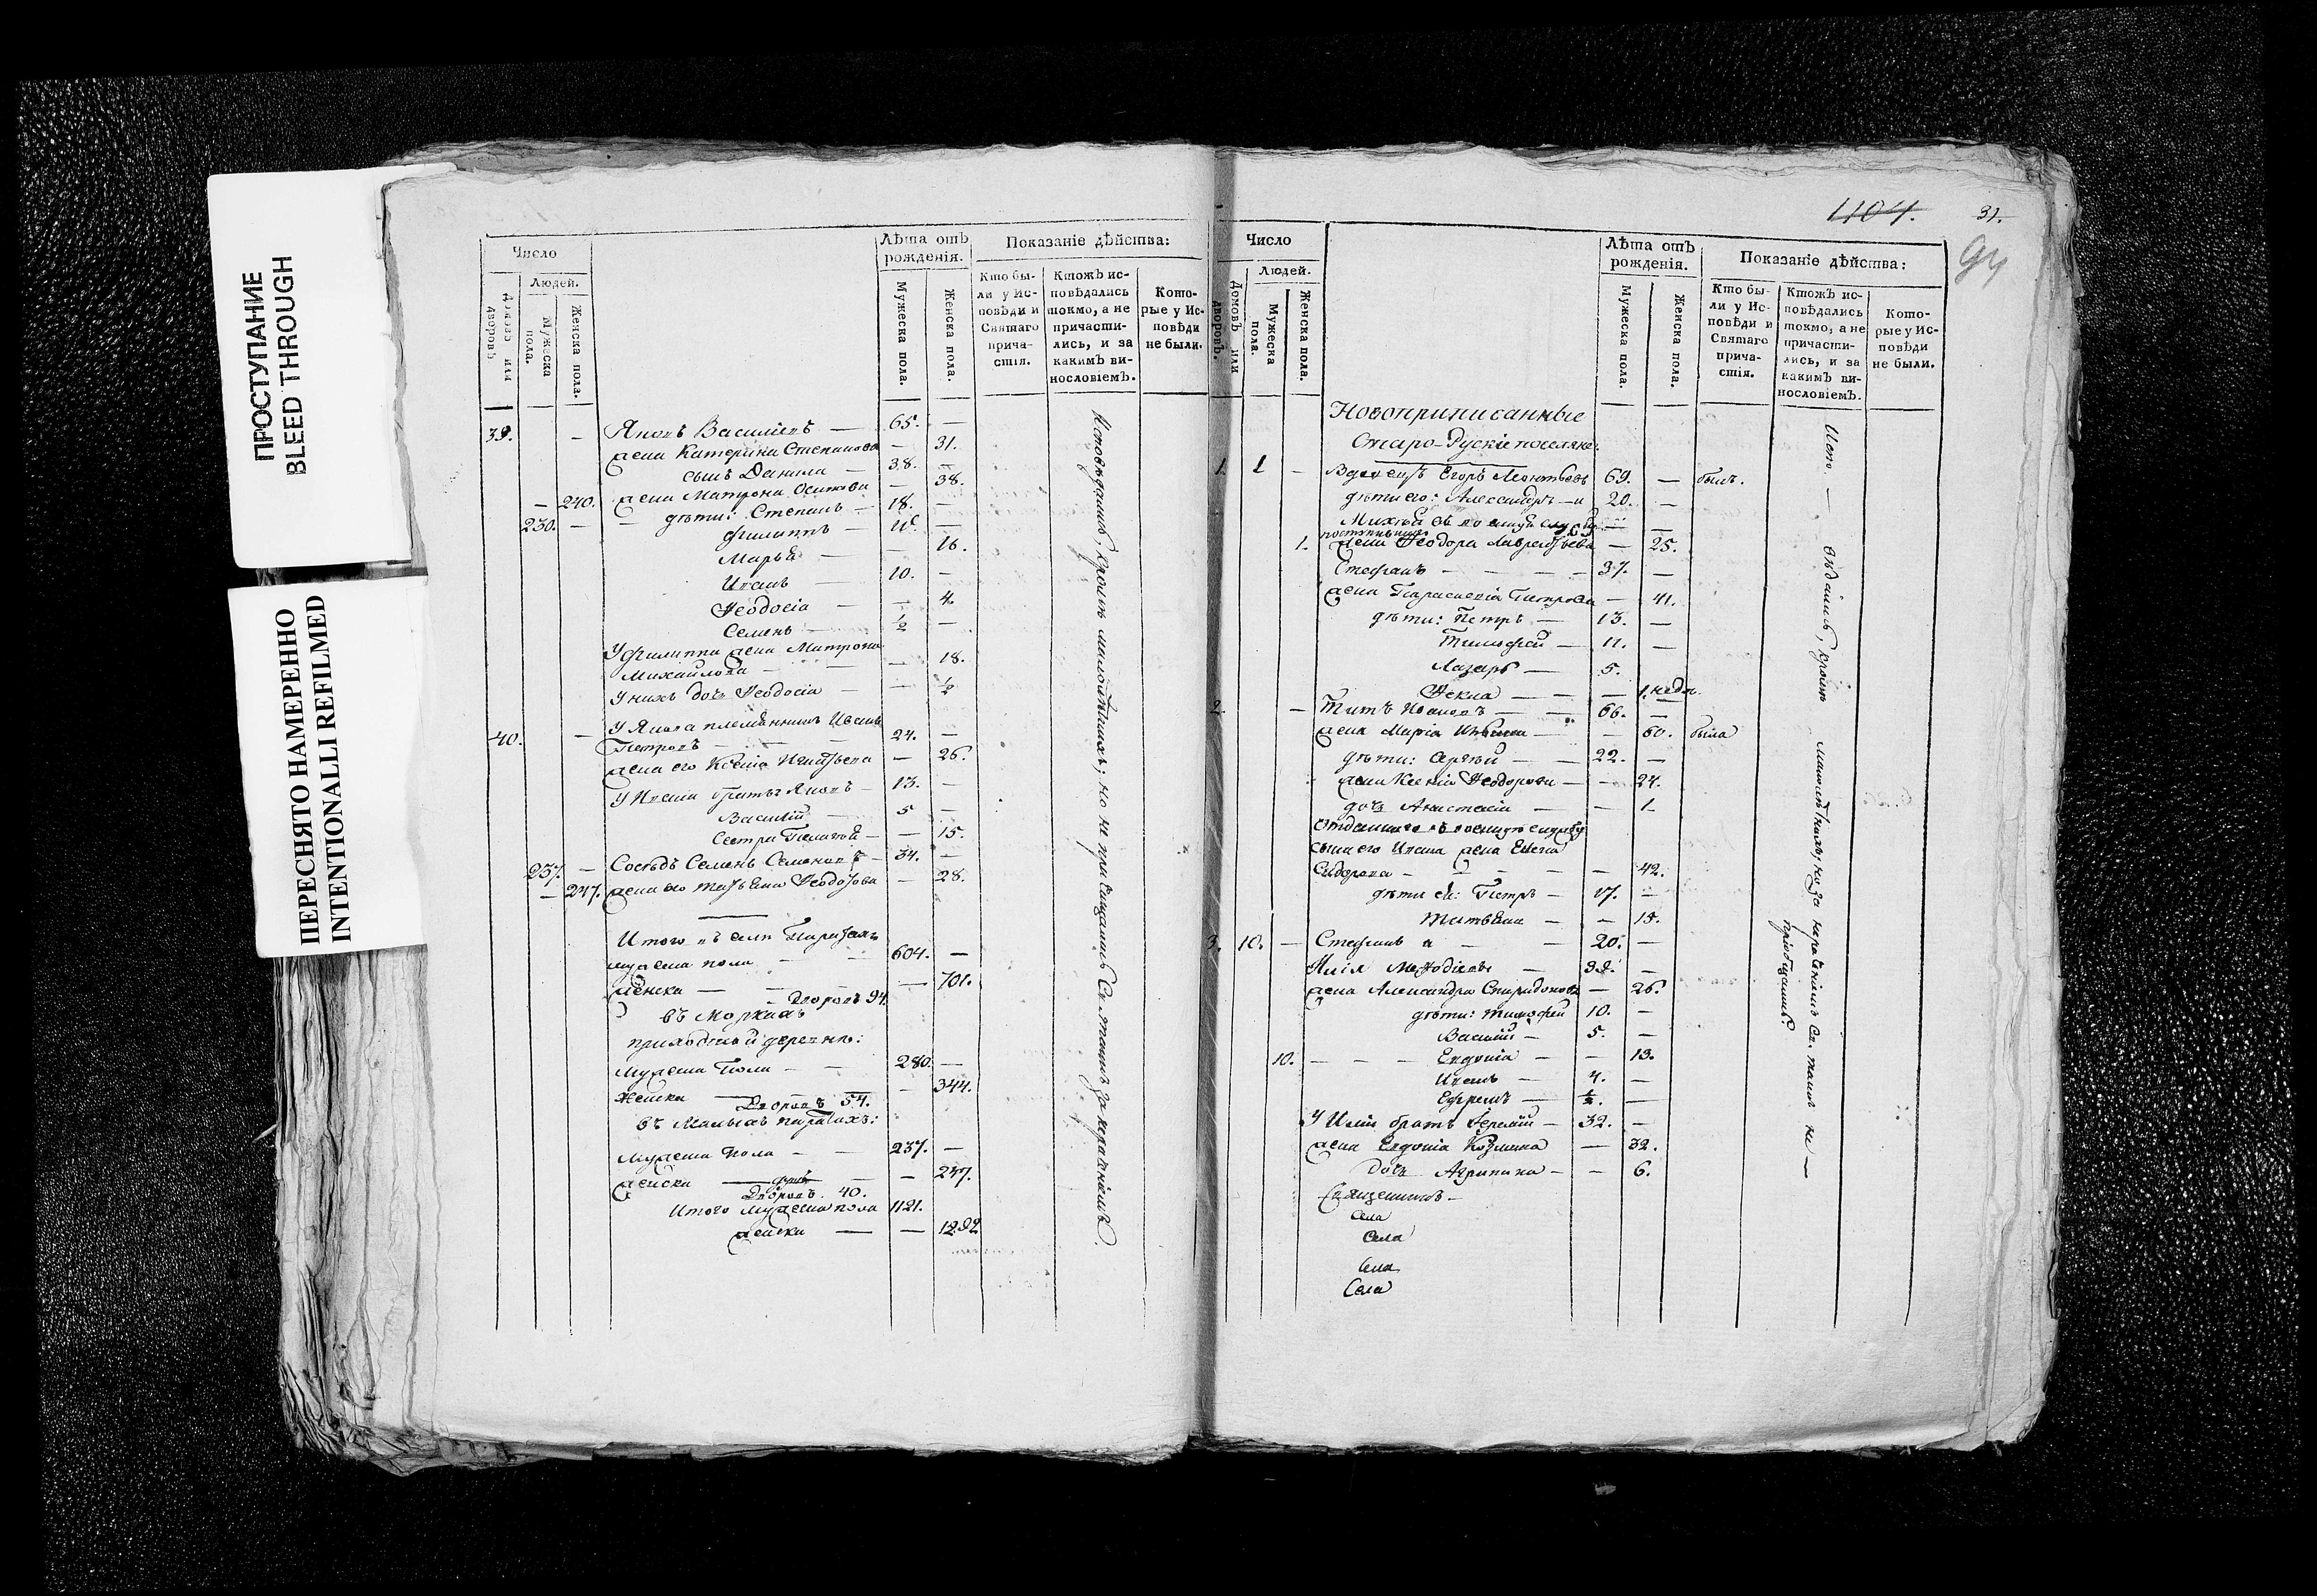 ПРОСТУПАНИЕ
BLEED THROUGH
ПЕРЕСНЯТО НАМЕРЕННО
INTENTIONALLI REFILMED
Число
Людей.
Домовъ или дворовъ
Мужеска пола.
Женска пола.
Лѣта отъ рожденія.
Мужеска пола.
Женска пола.
Показаніе дѣйства:
Кто были у Исповѣди и Святаго причастія.
Ктожъ исповѣдались токмо, а не причастились, и за какимъ винословіемъ.
Которые у Исповѣди не были.
39. — Яковъ Василіевъ — 65. —
жена Катерина Степанова — 31.
сынъ Данила — 38. —
— 240. жена Матрона Осипова — 38.
230. — дѣти: Степанъ — 18. —
Филиппъ —
Марья — — 16.
Иванъ — 10. —
Ѳеодосіа — — 4.
Семенъ — ½ —
У Филиппа жена Матрона
Михайлова — — 18.
У нихъ дочь Ѳеодосіа — — ½
У Якова племянникъ Иванъ
40. — Петровъ — 24. —
жена его Ксеніа — 26.
У Ивана братья Яковъ — 13. —
Василій — 5 —
Сестра Пелагея — — 15.
Сосѣдъ Семенъ Семеновъ — 34. —
237. —
— 247. жена его Татьяна — 28.
Итого въ селѣ
мужеска пола — 604. —
женска — — 701.
Дворовъ 94.
въ Моркахъ
приходской деревнѣ:
мужеска пола — 280. —
Женска — — 344.
Дворовъ 54.
въ Малыхъ
мужеска пола — 237. —
женска — — 247.
Дворовъ. 40.
Итого мужеска пола 1121.
женска — — 1292
Исповѣдались кромѣ малолѣтныхъ; но не причащались Св. таинъ за нераченіемъ.
1104.
31.
94
Число
Людей.
Домовъ или дворовъ.
Мужеска пола.
Женска пола.
Лѣта отъ рожденія.
Мужеска пола.
Женска пола.
Показаніе дѣйства:
Кто были у Исповѣди и Святаго причастія.
Ктожъ исповѣдались токмо, а не причастились, и за какимъ винословіемъ.
Которые у Исповѣди не были.
Новоприписанные
Старо-Рускіе поселяне:
1. 1 — Вдовецъ Егоръ Леонтьевъ 69. — былъ.
дѣти его: Александръ — и 20. —
1. жена Ѳеодора — 25.
Стефанъ — — — — 37. —
жена Параскевіа Петрова — 41.
дѣти: Петръ — 13. —
Тимофей — 11. —
Лазарь — 5.
Ѳекла — — — 1. недл.
2. — Титъ Ивановъ — — 66. —
жена Маріа — — 60. была
дѣти: Сергѣй — — 22. —
жена Ксеніа Ѳеодорова — — 24.
дочь Анастасіа — — 1.
Отданнаго въ военную службу
сына его Ивана жена Елена
Сидорова — — — — 42.
дѣти ея: Петръ — 17. —
Татьяна — — 15.
3. 10. — Стефанъ и — — 20. —
Иліа Меѳодіевы —
жена Александра Спиридонова — 26.
дѣти: Тимофей 10. —
Василій — 5. —
10. — — — Евдокіа — — 13.
Иванъ — 4. —
Ефремъ — ½. —
У Иліи братъ Іеремій — 32. —
жена Евдокіа Козмина — 32.
дочь Агрипина — — 6.
Священникъ —
Села
Села
Села
Села
Испо — вѣдались, кромѣ малолѣтныхъ; но за нераченіемъ Св. таинъ не — пріобщались.